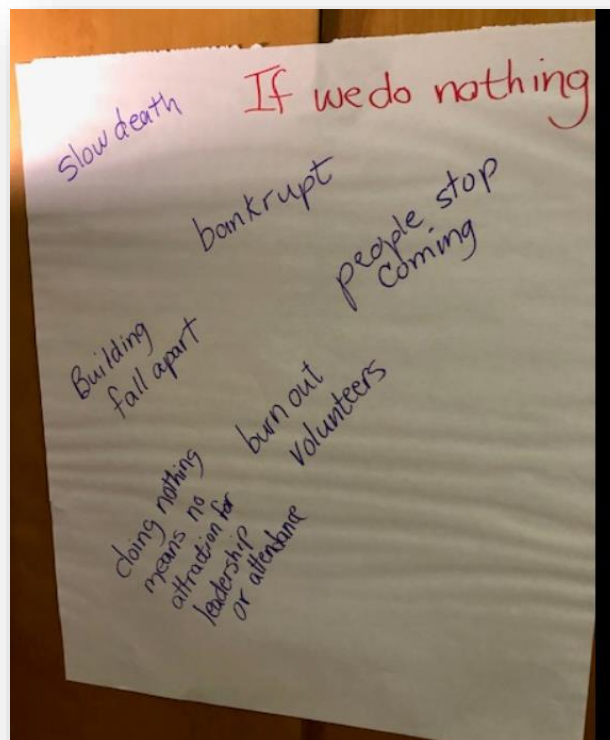 If we do nothing
slow death
bankrupt
people stop
coming
Building
fall apart
burn out
volunteers
doing nothing
means no
attraction for
leadership
or attendance